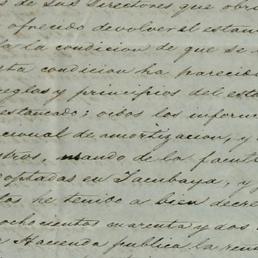 s de sus Directores que obra
ofrecido devolver el estan
la la condicion de que se
sta condicion ha parecido
reglas y principios del esta
estancado; oidos los inform
acional de amortizacion, y
stros, usando de la facult
coptadas en Tacubaya, y
los he tenido a bien decre
ochocientos cuarenta y dos
a Hacienda publica la ren